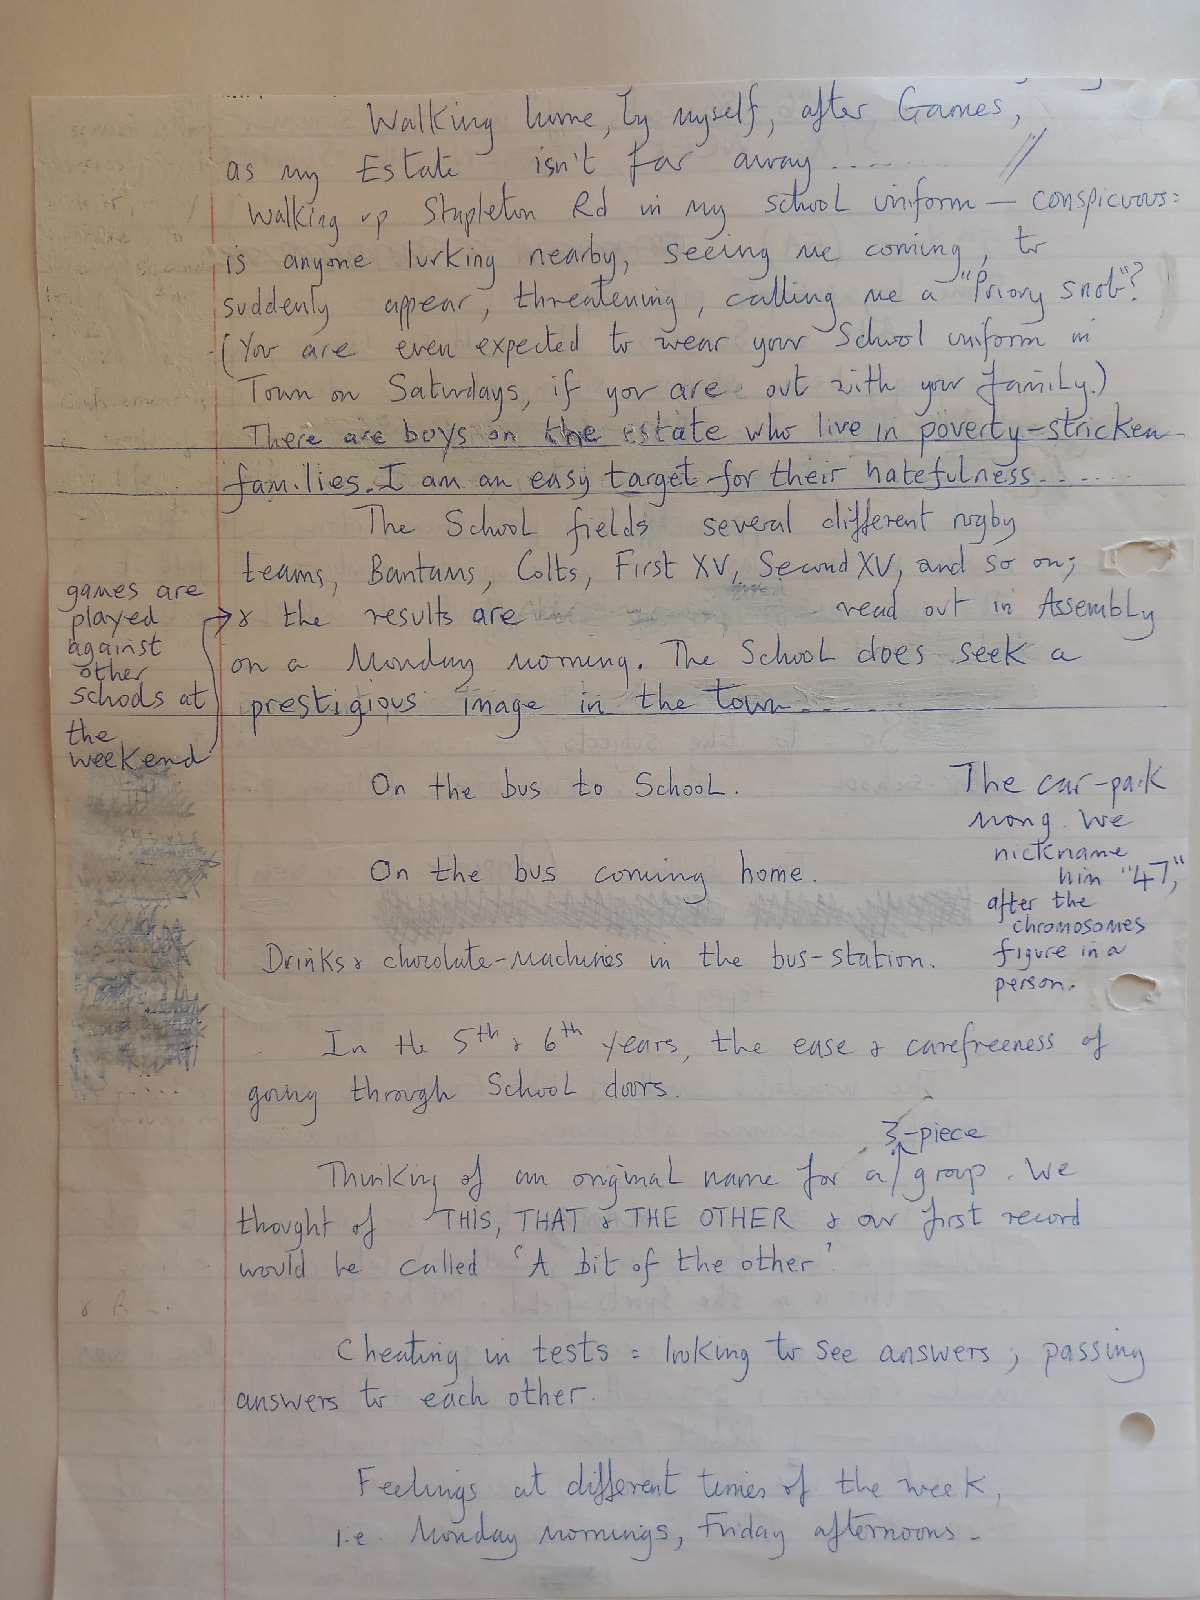 Walking home, by myself, after Games,
as my Estate isn't far away..........
Walking up Stapleton Rd in my school uniform — conspicuous:
is anyone lurking nearby, seeing me coming, to
suddenly appear, threatening, calling me a "Priory snob"?
(You are even expected to wear your School uniform in
Town on Saturdays, if you are out with your family.)
There are boys on the estate who live in poverty-stricken
families. I am an easy target for their hatefulness.......
The School fields several different rugby
teams, Bantams, Colts, First XV, Second XV, and so on;
games are
played
against
other
schools at
the
weekend
& the results are read out in Assembly
on a Monday morning. The School does seek a
prestigious image in the town.......
On the bus to School.
On the bus coming home.
The car-park
mong. We
nickname
him "47,"
after the
chromosomes
figure in a
person.
Drinks & chocolate-machines in the bus-station.
In the 5th & 6th years, the ease & carefreeness of
going through School doors.
3-piece
Thinking of an original name for a group. We
thought of THIS, THAT & THE OTHER & our first record
would be called 'A bit of the other'.
Cheating in tests = looking to see answers; passing
answers to each other.
Feelings at different times of the week,
i.e. Monday mornings, Friday afternoons.